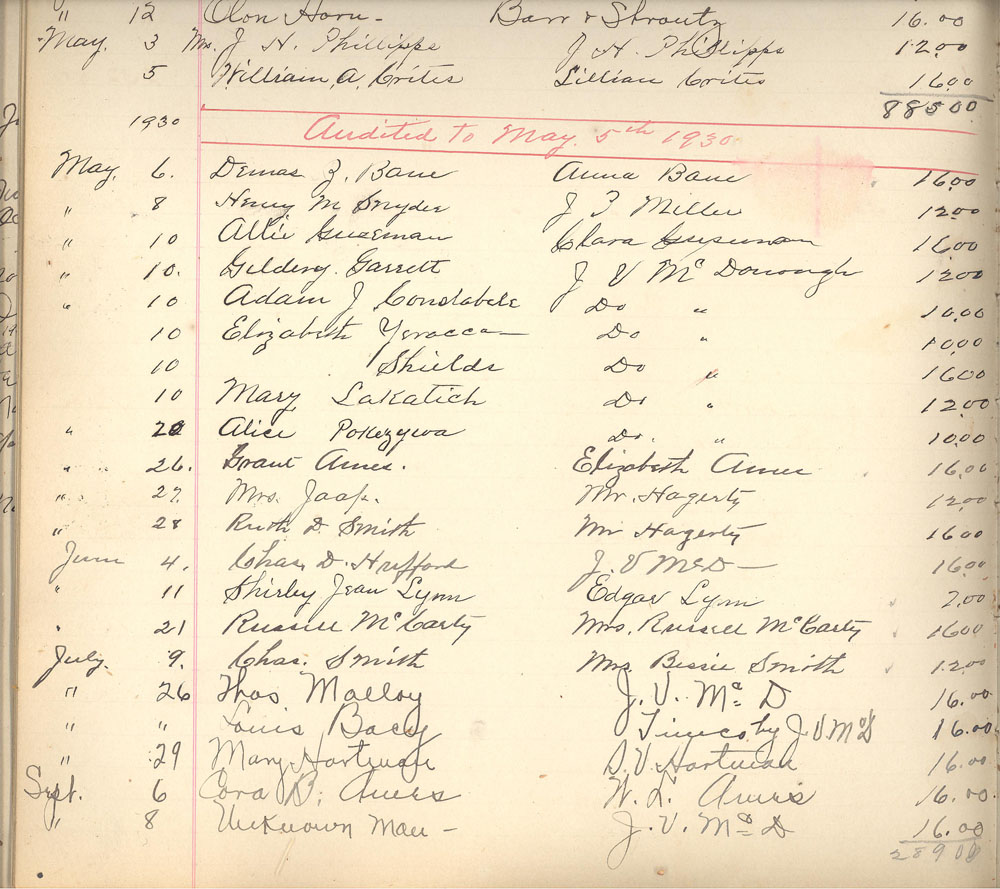 " 12 Olon Horn - Barr & Stroutz 16.00
May. 3 Mrs. J H. Phillipps J H. Phillipps 12.00
5 William A. Crites Lillian Crites 16.00
885.00
1930 Audited to May. 5th 1930.
May. 6. Demas Z. Bane Anna Bane 16.00
" 8 Henry M Snyder J T Miller 12.00
" 10 Allie Guseman Clara Guseman 16.00
" 10. Gildery Garrett J V Mc Donough 12.00
" 10 Adam J Constabele Do " 10.00
10 Elizabeth Yeracca Do " 10.00
10 Shields Do " 16.00
10 Mary Lakatich Do " 12.00
" 20 Alice Pokezywa Do. " 10.00
" 26. Grant Ames. Elizabeth Ames 16.00
" 27. Mrs. Jaap. Mr. Hagerty 12.00
" 28 Ruth D. Smith Mr Hagerty 16.00
June 4. Chas. D. Hufford J. V McD - 16.00
" 11 Shirley Jean Lynn Edgar Lynn 2.00
" 21 Russell McCarty Mrs. Russell McCarty 16.00
July. 9. Chas. Smith Mrs Bessie Smith 12.00
" 26 Thos Malloy J. V. Mc D 16.00
" " Louis Bacy by J V McD 16.00
" 29 Mary Hartman S. V. Hartman 16.00
Sept. 6 Cora B. Amers W. L. Amers 16.00
" 8 Unknown Man - J. V. Mc D 16.00
289 00